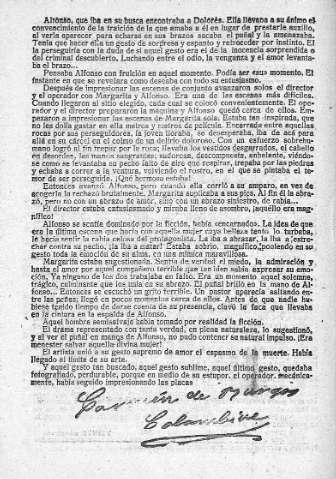 Alfonso, que iba en su busca encontraba a Dolores. Ella llevaba a su ánimo el
convencimiento de la traición de la que amaba si él en lugar de prestarle auxilio,
el verla aparecer para echarse en sus brazos sacaba el puñal y la amenazaba.
Tenía que hacer ella un gesto de sorpresa y espanto y retroceder por instinto. El
la perseguía con la duda de si aquel gesto era el de la inocencia sorprendida o
del criminal descubierto. Luchando entre el odio, la venganza y el amor levanta-
ba el brazo.
Pensaba Alfonso con fruición en aquel momento. Podía ser suyo momento. El
instante en que se revelara como deseaba con todo su entusiasmo.
Después de impresionar las escenas de conjunto avanzaron solos el director
y el operador con Margarita y Alfonso. Era una de las escenas más difíciles.
Cuando llegaron al sitio elegido, cada cual se colocó convenientemente. El ope-
rador y el director prepararon la máquina y Alfonso quedó cerca de ellos. Em-
pezaron a impresionar las escenas de Margarita sola. Estaba tan inspirada, que
no les dolía gastar en ella metros y metros de película. Encerrada entre aquellas
rocas por sus perseguidores, la joven lloraba, se desesperaba, iba de acá para
allá en su cárcel en el colmo de un delirio doloroso. Con un esfuerzo sobrehu-
mano logró al fin trepar por la roca; llevaba los vestidos desgarrados, el cabello
en desorden, las manos sangrantes; sudorosa, descompuesta, anhelante, viéndo-
se como se levantaba su pecho falto de aire que respirar, trepaba por las piedras
y echaba a correr a la ventura, volviendo el rostro, en el que se pintaba el te-
mor de ser perseguida. ¡Qué hermosa estaba!
Entonces avanzó Alfonso, pero cuando ella corrió a su amparo, en vez de
acogerla la rechazó brutalmente. Margarita suplicaba a sus pies. Al fin él la abra-
zó, pero no con un abrazo de amor, sino con un abrazo siniestro, de rabia...
El director estaba entusiasmado y miraba lleno de asombro, ¡aquello era mag-
nífico!
Alfonso se sentía dominado por la ficción, había «encarnado». La idea de que
era la última escena que haría con aquella mujer cuya belleza tanto lo turbaba,
le hacía sentir la rabia celosa del protagonista. La iba a abrazar, la iba a estre-
char contra su pecho, ¡la iba a matar! Estaba sobrio, magnífico, poniendo en su
gesto toda la emoción de su alma, en una mímica maravillosa.
Margarita estaba sugestionada. Sentía de verdad el miedo, la admiración y
hasta el amor por aquel compañero terrible que tan bien sabía expresar su emo-
ción. Ya ninguno de los dos trabajaba en falso. Era un momento aquel solemne,
trágico, culminante que los unía en su abrazo. El puñal brilló en la mano de Al-
fonso... Entonces se escuchó un grito terrible. Un pastor aparecía saltando en-
tre las peñas; llegó en pocos momentos cerca de ellos. Antes de que nadie hu-
biese tenido tiempo de darse cuenta de su presencia, clavó la faca que llevaba
en la cintura en la espalda de Alfonso.
Aquel hombre semisalvaje había tomado por realidad la ficción.
El drama representado con tanta verdad, en plena naturaleza, lo sugestionó,
y al ver el puñal en manos de Alfonso, no pudo contener su natural impulso. ¡Era
menester salvar aquella divina mujer!
El artista unió a su gesto supremo de amor el espasmo de la muerte. Había
llegado al límite de su arte.
Y aquel gesto tan buscado, aquel gesto sublime, aquel último gesto, quedaba
fotografiado, perdurable, porque en medio de su estupor, el operador, mecánica-
mente, había seguido impresionando las placas
Carmen de Burgos
Colombine